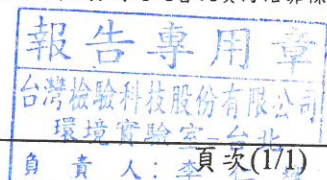 報告專用章
台灣檢驗科技股份有限公司
環境實驗室-台北
負責人:李
頁次(1/1)